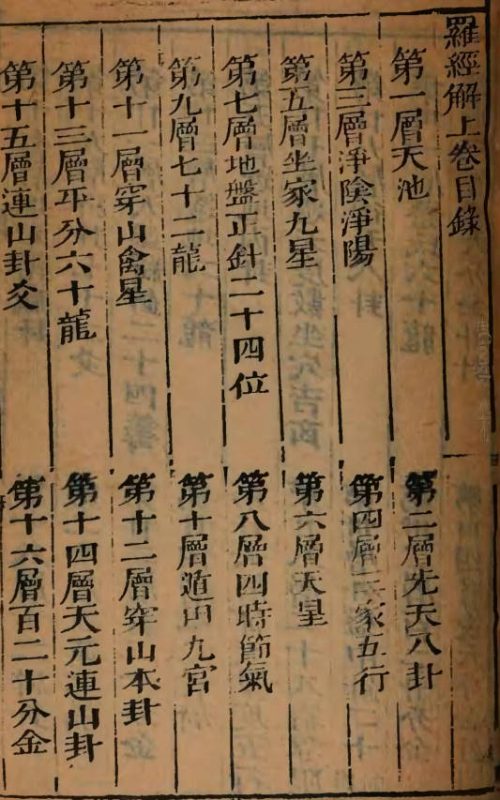 羅經解上卷目錄
第一層天池
第二層先天八卦
第三層淨陰淨陽
第四層三家五行
第五層坐家九星
第六層天星
第七層地盤正針二十四位
第八層四時節氣
第九層七十二龍
第十層遁甲九宮
第十一層穿山禽星
第十二層穿山本卦
第十三層平分六十龍
第十四層天元連山卦
第十五層連山卦爻
第十六層百二十分金